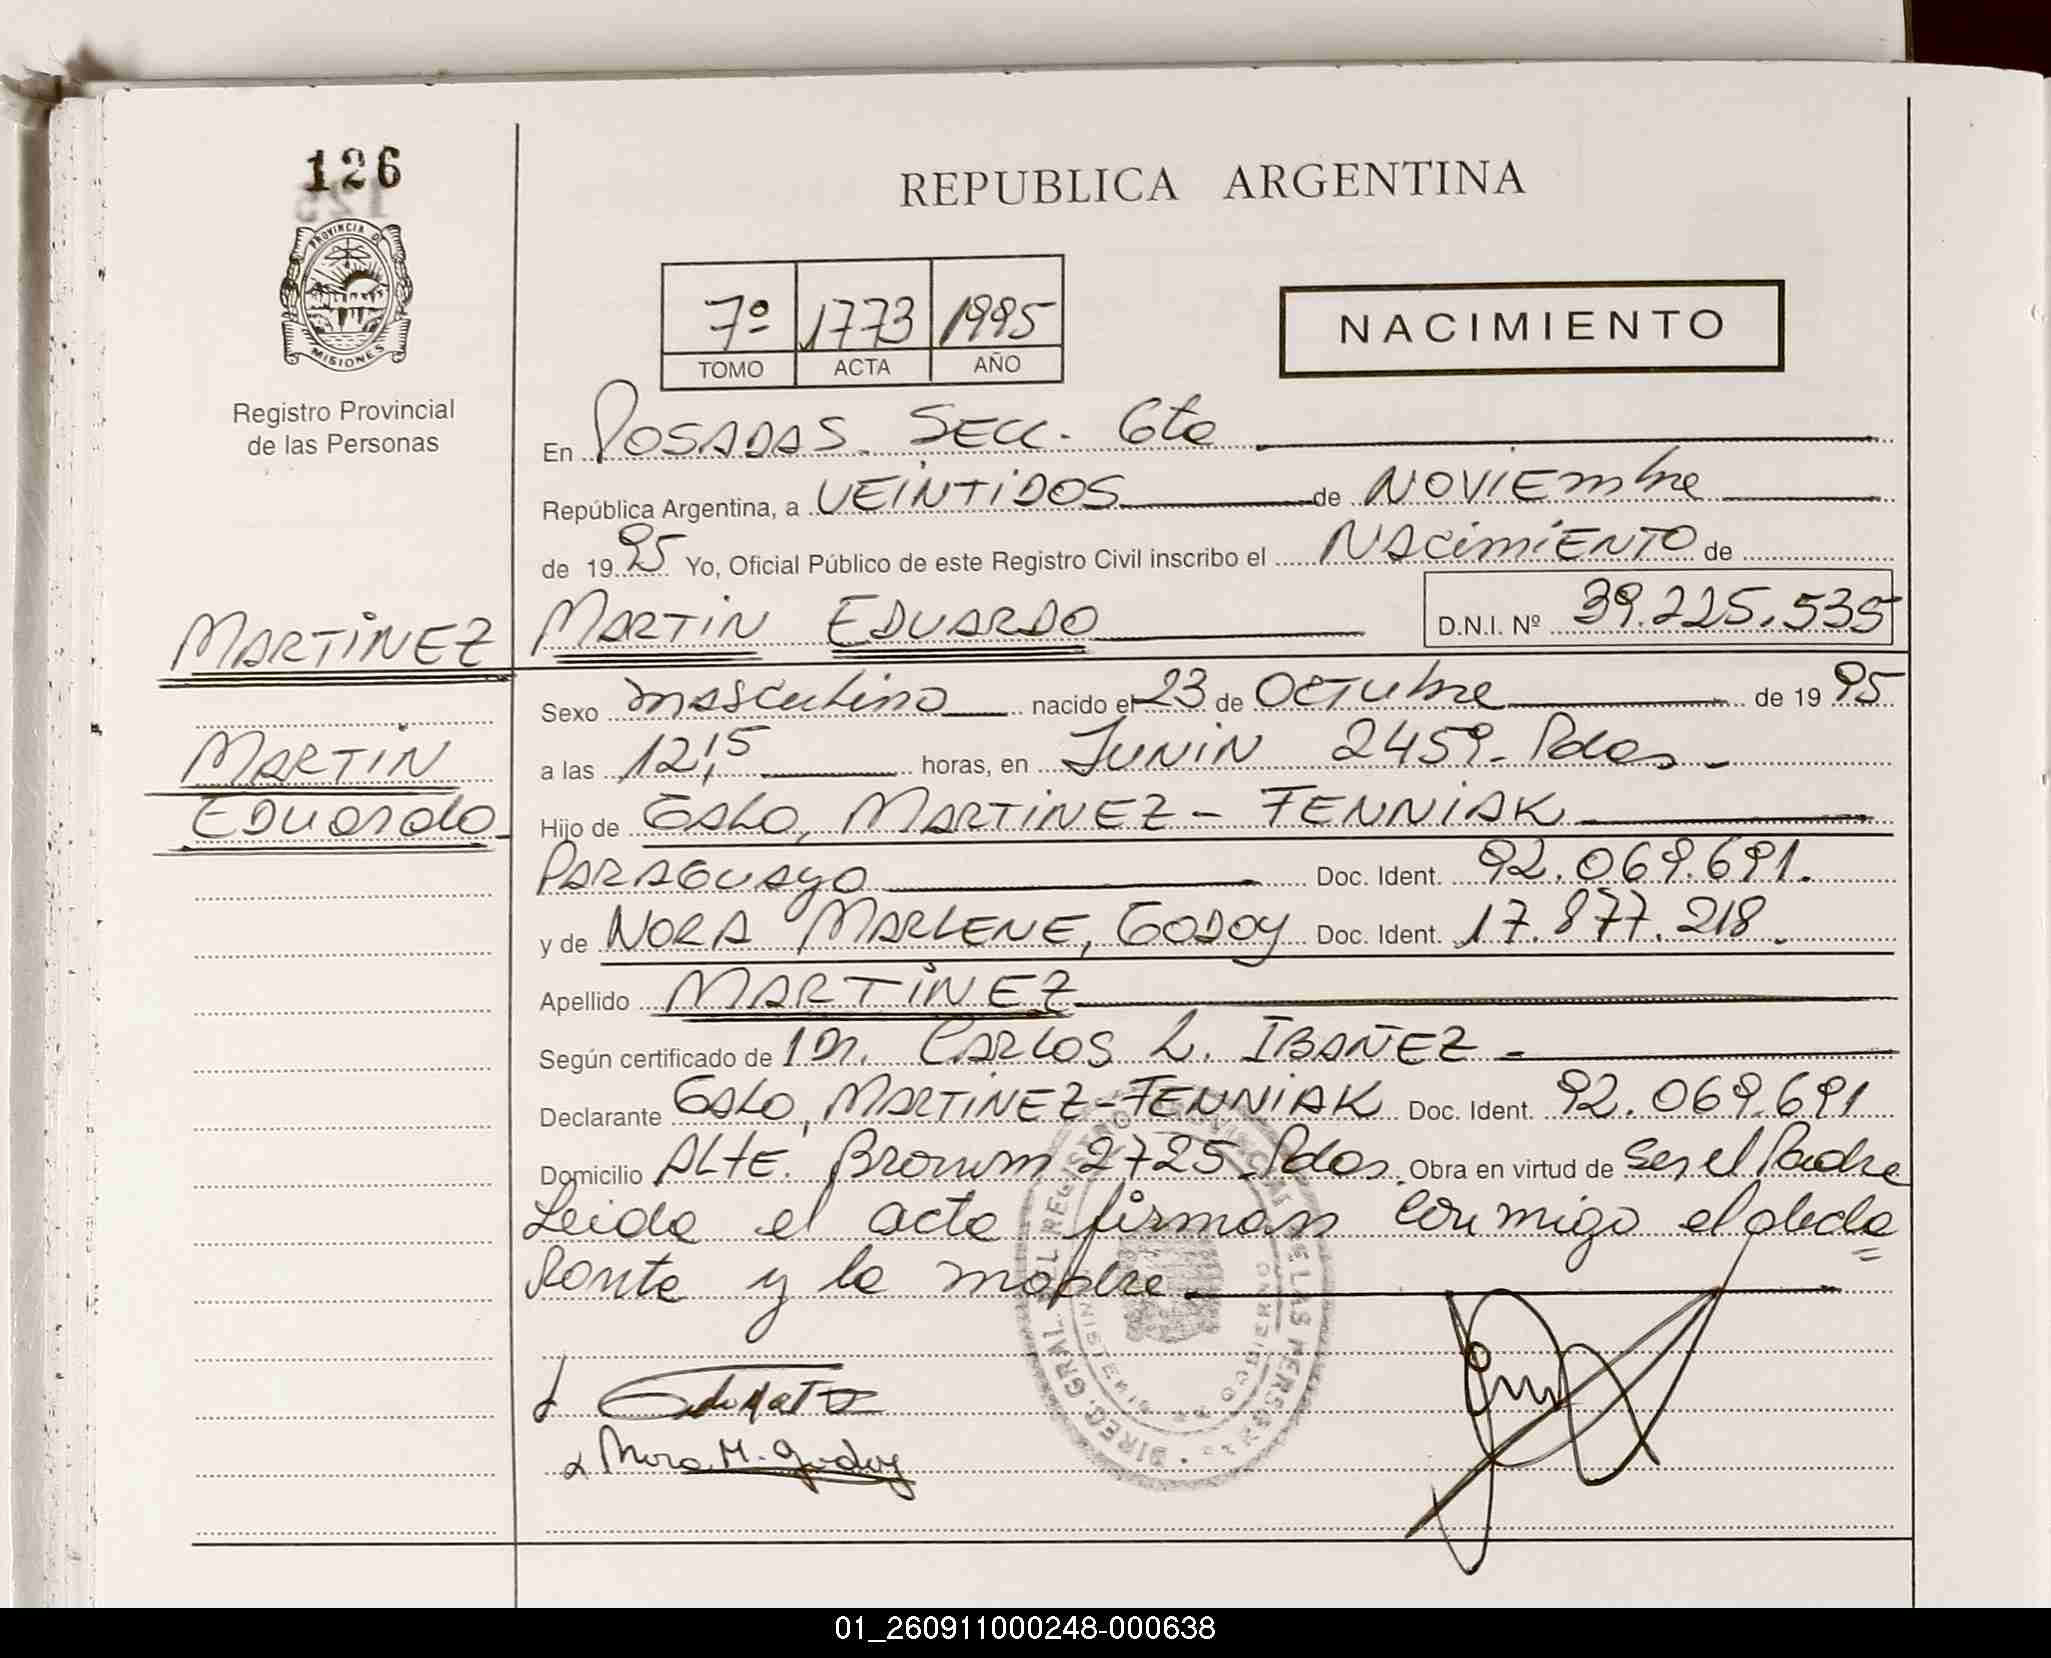 126
REPUBLICA ARGENTINA
PROVINCIA DE
MISIONES
Registro Provincial
de las Personas
7º 1773 1995
TOMO ACTA AÑO
NACIMIENTO
En POSADAS SECC. 6ta
República Argentina, a VEINTIDOS de NOVIEmbre
de 1995 Yo, Oficial Público de este Registro Civil inscribo el NAcimiENTO de
MARTINEZ
MARTIN EDUARDO D.N.I. Nº 39.225.535
MARTIN
EDUARdo
Sexo masculino nacido el 23 de OCTUbre de 1995
a las 12,15 horas, en JUNIN 2459- Pdas-
Hijo de GALO, MARTINEZ - FENNIAK
PARAGUAyo Doc. Ident. 92.069.691.
y de NORA MARLENE, GODOY Doc. Ident. 17.877.218.
Apellido MARTINEZ
Según certificado de Dr. CARLOS L. IBAÑEZ -
Declarante GALO, MARTINEZ-FENNIAK Doc. Ident. 92.069.691
Domicilio ALTE. Brown 2725 Pdas. Obra en virtud de Ser el Padre
Leida el acta firman conmigo el decla=
rante y la madre
Nora M. Godoy
DIREC. GRAL. DEL REGISTRO PROVINCIAL DE LAS PERSONAS
01_260911000248-000638